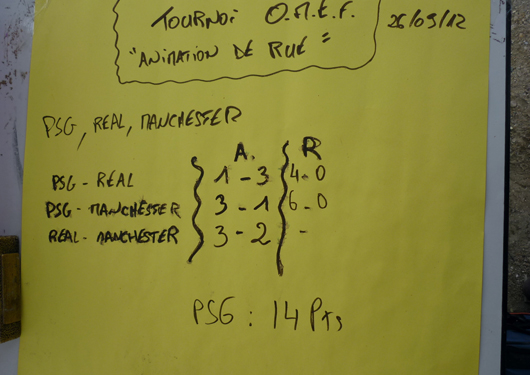 TOURNOi O.M.E.F. 26/09/12
"ANiMATiON DE RUE"
PSG, REAL, MANCHESTER
A. R
PSG - REAL 1 - 3 4 - 0
PSG - MANCHESTER 3 - 1 6 - 0
REAL - MANCHESTER 3 - 2 -
PSG : 14 Pts